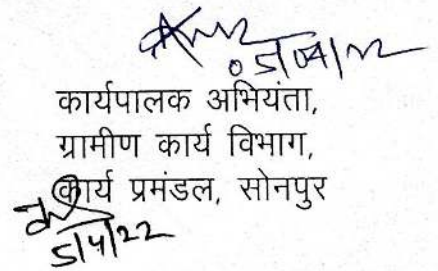 05/04/22
कार्यपालक अभियंता,
ग्रामीण कार्य विभाग,
कार्य प्रमंडल, सोनपुर
5/4/22